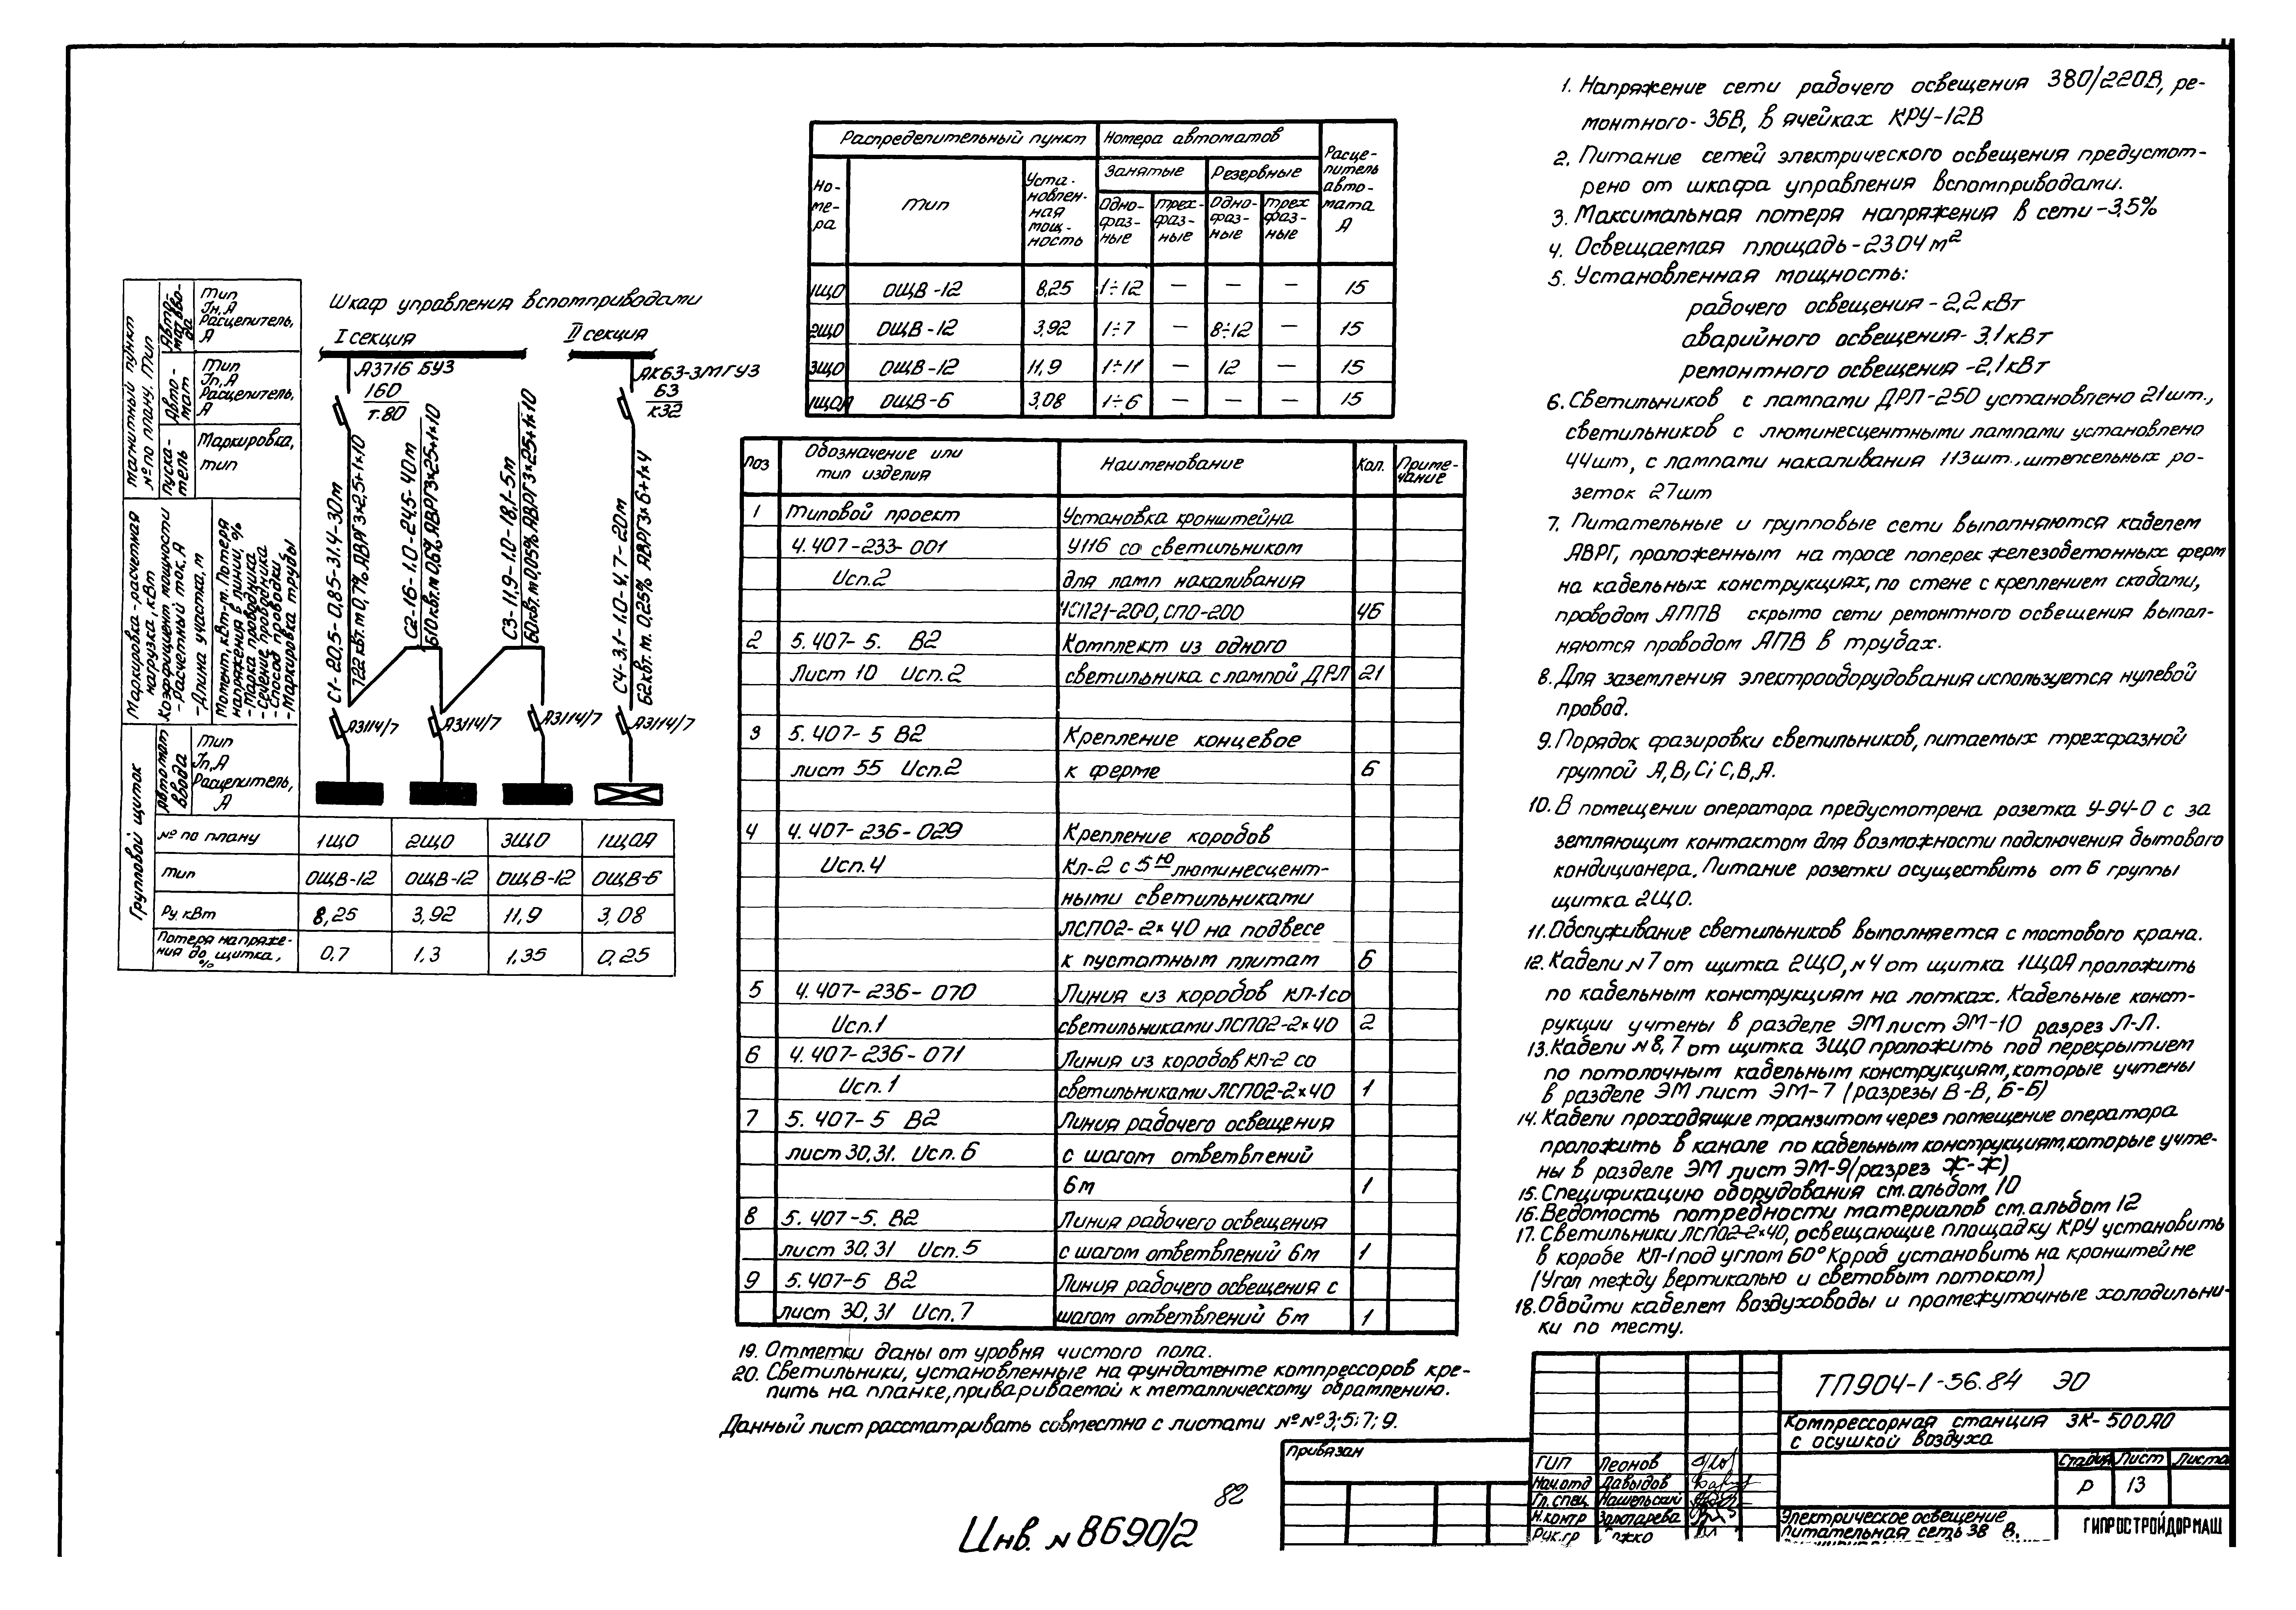 Магнитный пункт
№ по плану. Тип
Автомат ввода
Тип
Iн, А
Расцепитель,
А
Автомат
Тип
Iп, А
Расцепитель,
А
Пускатель
Маркировка,
тип
Маркировка - расчетная
нагрузка, кВт
Коэффициент мощности
- Расчетный ток, А
- Длина участка, м
Момент, кВт-м. Потеря
напряжения в линии, %
- Марка проводника
- Сечение проводника
- Способ проводки
- Маркировка трубы
Групповой щиток
Автомат
ввода
Тип
Iп, А
Расцепитель,
А
Шкаф управления вспомприводами
I секция
II секция
А3716 БУ3
160
т.80
АК63-3МГУ3
63
К32
С1-20,5-0,85-31,4-30м
722 кВт.м 0,7% АВРГ 3×25+1×10
С2-16-1.0-24,5-40м
610кВт.м 0,6% АВРГ 3×25+1×10
С3-11,9-1.0-18,1-5м
60кВт.м 0,05% АВРГ 3×25+1×10
С4-3,1-1.0-4,7-20м
62кВт.м. 0,25% АВРГ 3×6+1×4
А3114/7
А3114/7
А3114/7
А3114/7
№ по плану 1ЩО 2ЩО 3ЩО 1ЩОА
Тип ОЩВ-12 ОЩВ-12 ОЩВ-12 ОЩВ-6
Ру, кВт 8,25 3,92 11,9 3,08
Потеря напряже-
ния до щитка,
% 0,7 1,3 1,35 0,25
Распределительный пункт Номера автоматов Расце-
питель
авто-
мата
А
Но-
ме-
ра
Тип
Уста-
новлен-
ная
мощ-
ность
Занятые Резервные
Одно-
фаз-
ные
Трех-
фаз-
ные
Одно-
фаз-
ные
Трех
фаз-
ные
1ЩО ОЩВ-12 8,25 1÷12 — — — 15
2ЩО ОЩВ-12 3,92 1÷7 — 8÷12 — 15
3ЩО ОЩВ-12 11,9 1÷11 — 12 — 15
1ЩОА ОЩВ-6 3,08 1÷6 — — — 15
Поз Обозначение или
тип изделия Наименование Кол. Приме-
чание
1 Типовой проект Установка кронштейна
4.407-233-001 У116 со светильником
Исп.2 для ламп накаливания
НСП21-200, СПО-200 46
2 5.407-5. В2 Комплект из одного
Лист 10 Исп.2 светильника с лампой ДРЛ 21
3 5.407-5 В2 Крепление концевое
лист 55 Исп.2 к ферме 6
4 4.407-236-029 Крепление коробов
Исп.4 Кл-2 с 5ю люминесцент-
ными светильниками
ЛСП02-2×40 на подвесе
к пустотным плитам 6
5 4.407-236-070 Линия из коробов КЛ-1 со
Исп.1 светильниками ЛСП02-2×40 2
6 4.407-236-071 Линия из коробов КЛ-2 со
Исп.1 светильниками ЛСП02-2×40 1
7 5.407-5 В2 Линия рабочего освещения
лист 30,31. Исп.6 с шагом ответвлений
6м 1
8 5.407-5. В2 Линия рабочего освещения
лист 30,31 Исп.5 с шагом ответвлений 6м 1
9 5.407-5 В2 Линия рабочего освещения с
лист 30,31 Исп.7 шагом ответвлений 6м 1
1. Напряжение сети рабочего освещения 380/220В, ре-
монтного-36В, в ячейках КРУ-12В
2. Питание сетей электрического освещения предусмот-
рено от шкафа управления вспомприводами.
3. Максимальная потеря напряжения в сети-3,5%
4. Освещаемая площадь-2304м²
5. Установленная мощность:
рабочего освещения - 2,2 кВт
аварийного освещения- 3,1 кВт
ремонтного освещения -2,1 кВт
6. Светильников с лампами ДРЛ-250 установлено 21шт.,
светильников с люминесцентными лампами установлено
44шт, с лампами накаливания 113шт., штепсельных ро-
зеток 27шт
7. Питательные и групповые сети выполняются кабелем
АВРГ, проложенным на тросе поперек железобетонных ферм
на кабельных конструкциях, по стене с креплением скобами,
проводом АППВ скрыто сети ремонтного освещения выпол-
няются проводом АПВ в трубах.
8. Для заземления электрооборудования используется нулевой
провод.
9. Порядок фазировки светильников, питаемых трехфазной
группой А,В,С; С,В,А.
10. В помещении оператора предусмотрена розетка У-94-0 с за
земляющим контактом для возможности подключения бытового
кондиционера. Питание розетки осуществить от 6 группы
щитка 2ЩО.
11. Обслуживание светильников выполняется с мостового крана.
12. Кабели №7 от щитка 2ЩО, №4 от щитка 1ЩОА проложить
по кабельным конструкциям на лотках. Кабельные конст-
рукции учтены в разделе ЭМ лист ЭМ-10 разрез Л-Л.
13. Кабели №8,7 от щитка 3ЩО проложить под перекрытием
по потолочным кабельным конструкциям, которые учтены
в разделе ЭМ лист ЭМ-7 (разрезы В-В, Б-Б)
14. Кабели проходящие транзитом через помещение оператора
проложить в канале по кабельным конструкциям, которые учте-
ны в разделе ЭМ лист ЭМ-9 (разрез Ж-Ж)
15. Спецификацию оборудования см. альбом 10
16. Ведомость потребности материалов см. альбом 12
17. Светильники ЛСП02-2×40, освещающие площадку КРУ установить
в коробе КЛ-1 под углом 60° Короб установить на кронштейне
(Угол между вертикалью и световым потоком)
18. Обойти кабелем воздуховоды и промежуточные холодильни-
ки по месту.
19. Отметки даны от уровня чистого пола.
20. Светильники, установленные на фундаменте компрессоров кре-
пить на планке, привариваемой к металлическому обрамлению.
Данный лист рассматривать совместно с листами №№3;5;7;9.
Привязан
82
Инв. № 8690/2
ТП904-1-56.84 ЭО
Компрессорная станция 3К-500АО
с осушкой воздуха
Стадия Лист Листо
Р 13
ГИП Леонов
Нач.отд Давыдов
Гл.спец Нашельский
Н.контр Золотарева
Рук.гр
Электрическое освещение
Питательная сеть 38 В,
ГИПРОСТРОЙДОРМАШ